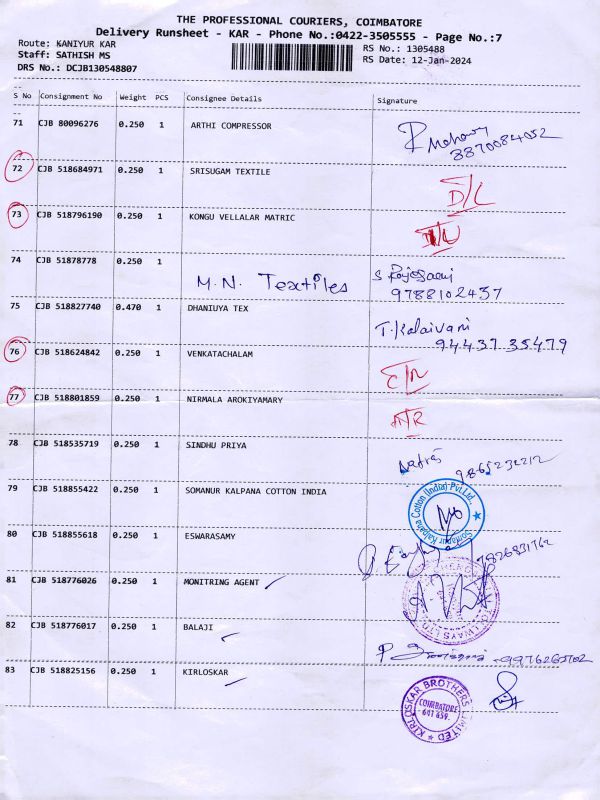 THE PROFESSIONAL COURIERS, COIMBATORE
Delivery Runsheet - KAR - Phone No.:0422-3505555 - Page No.:7
Route: KANIYUR KAR
RS No.: 1305488
Staff: SATHISH MS
RS Date: 12-Jan-2024
DRS No.: DCJB130548807
S No Consignment No Weight PCS Consignee Details Signature
71 CJB 80096276 0.250 1 ARTHI COMPRESSOR
8870084052
72 CJB 518684971 0.250 1 SRISUGAM TEXTILE D/L
73 CJB 518796190 0.250 1 KONGU VELLALAR MATRIC
74 CJB 51878778 0.250 1
M.N. Textiles
9788102437
75 CJB 518827740 0.470 1 DHANIUYA TEX T. Kalaivani
94437 35479
76 CJB 518624842 0.250 1 VENKATACHALAM
77 CJB 518801859 0.250 1 NIRMALA AROKIYAMARY
78 CJB 518535719 0.250 1 SINDHU PRIYA
79 CJB 518855422 0.250 1 SOMANUR KALPANA COTTON INDIA
Somanur Kalpana Cotton (India) Pvt.Ltd.,
80 CJB 518855618 0.250 1 ESWARASAMY 7826831762
81 CJB 518776026 0.250 1 MONITRING AGENT
82 CJB 518776017 0.250 1 BALAJI
83 CJB 518825156 0.250 1 KIRLOSKAR
KIRLOSKAR BROTHERS LIMITED
COIMBATORE
641 659.